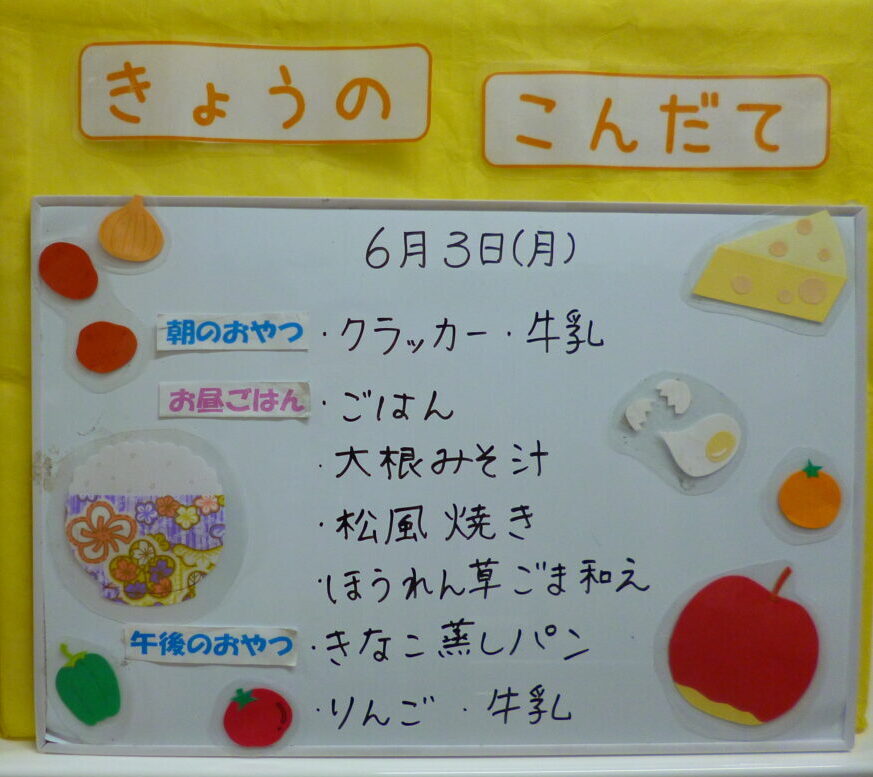 きょうの こんだて
6月3日(月)
朝のおやつ ・クラッカー・牛乳
お昼ごはん ・ごはん
・大根みそ汁
・松風焼き
・ほうれん草ごま和え
午後のおやつ ・きなこ蒸しパン
・りんご ・牛乳